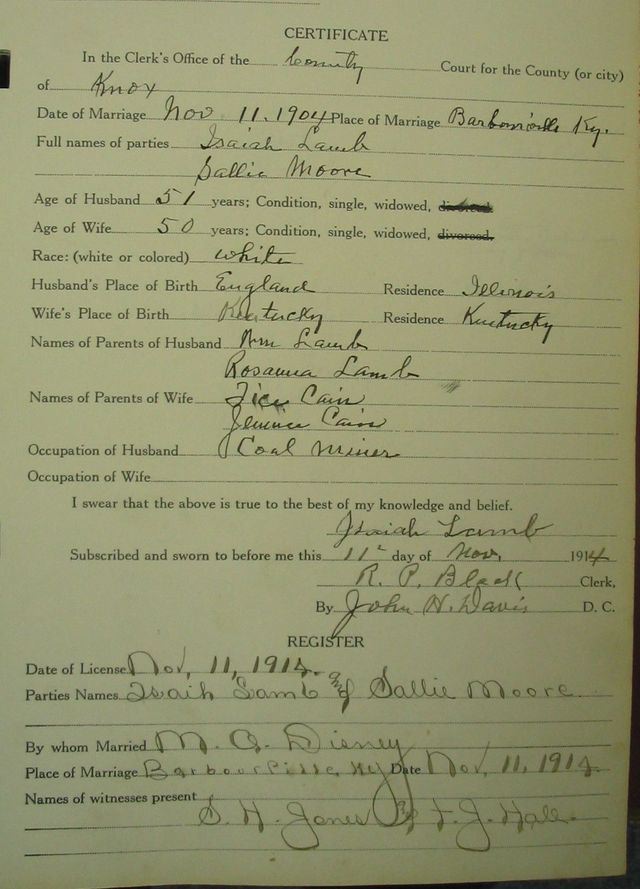 CERTIFICATE
In the Clerk's Office of the County Court for the County (or city)
of Knox
Date of Marriage Nov 11, 1904 Place of Marriage Barbourville Ky.
Full names of parties Isaiah Lamb
Sallie Moore
Age of Husband 51 years; Condition, single, widowed, divorced.
Age of Wife 50 years; Condition, single, widowed, divorced.
Race: (white or colored) white
Husband's Place of Birth England Residence Illinois
Wife's Place of Birth Kentucky Residence Kentucky
Names of Parents of Husband Wm Lamb
Rosanna Lamb
Names of Parents of Wife Cain
Cain
Occupation of Husband Coal Miner
Occupation of Wife
I swear that the above is true to the best of my knowledge and belief.
Isaiah Lamb
Subscribed and sworn to before me this 11" day of Nov, 1914
R. P. Black Clerk,
By John H. Davis D. C.
REGISTER
Date of License Nov, 11, 1914.
Parties Names Isaih Lamb and Sallie Moore
By whom Married M. Q. Disney
Place of Marriage Barbourville, Ky Date Nov, 11, 1914.
Names of witnesses present
S. H. Jones & F. J. Hale.